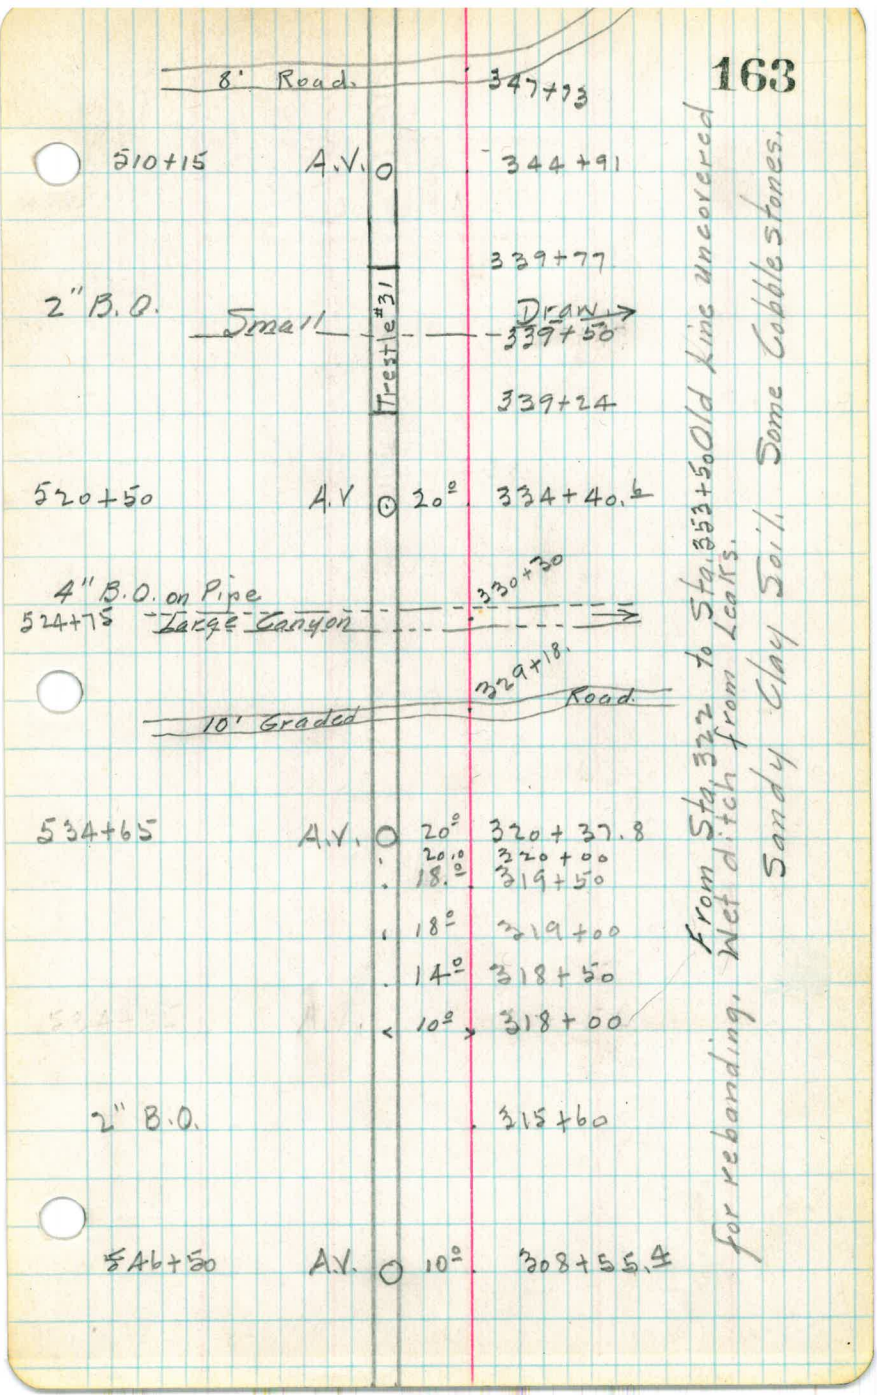 163
8' Road. 347+73
510+15 A.V. 344+91
339+77
2" B.O. Small Draw
Trestle #31
339+50
339+24
520+50 A.V 20º 334+40.6
4" B.O. on Pipe 330+30
524+75 Large Canyon
329+18.
10' Graded Road.
534+65 A.V. 20º 320+37.8
20.0 320+00
18.º 319+50
18º 319+00
14º 318+50
10º 318+00
2" B.O. 315+60
546+50 A.V. 10º 308+55.4
From Sta. 322 to Sta. 353+50 Old Line uncovered
for rebanding. Wet ditch from Leaks.
Sandy Clay Soil. Some Cobblestones.